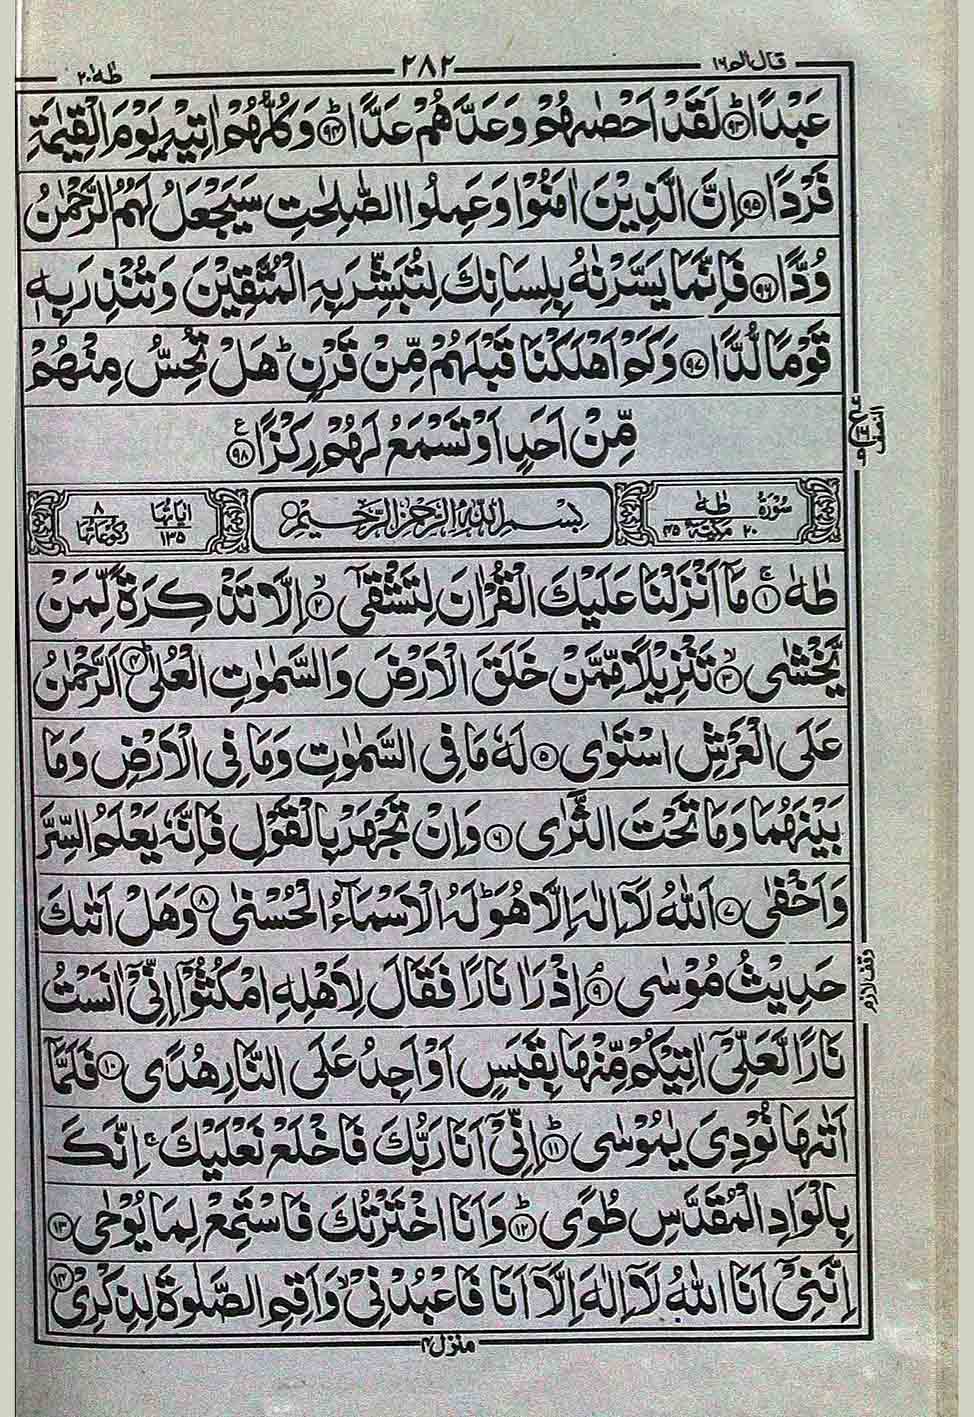 قال الم ١٦ ٢٨٢ طٰهٰ ٢٠
عَبْدًا ﴿٩٣﴾ؕ لَقَدْ اَحْصٰىهُمْ وَعَدَّهُمْ عَدًّا ﴿٩٤﴾ؕ وَكُلُّهُمْ اٰتِيْهِ يَوْمَ الْقِيٰمَةِ
فَرْدًا ﴿٩٥﴾ اِنَّ الَّذِيْنَ اٰمَنُوْا وَعَمِلُوا الصّٰلِحٰتِ سَيَجْعَلُ لَهُمُ الرَّحْمٰنُ
وُدًّا ﴿٩٦﴾ فَاِنَّمَا يَسَّرْنٰهُ بِلِسَانِكَ لِتُبَشِّرَ بِهِ الْمُتَّقِيْنَ وَتُنْذِرَ بِهٖ
قَوْمًا لُّدًّا ﴿٩٧﴾ وَكَمْ اَهْلَكْنَا قَبْلَهُمْ مِّنْ قَرْنٍؕ هَلْ تُحِسُّ مِنْهُمْ
مِّنْ اَحَدٍ اَوْ تَسْمَعُ لَهُمْ رِكْزًا ﴿٩٨﴾ ع
النصف
سُوْرَةُ طٰهٰ ٢٠ مَكِّيَّةٌ ٤٥
بِسْمِ اللّٰهِ الرَّحْمٰنِ الرَّحِيْمِ
اٰيَاتُهَا ١٣٥ رُكُوْعَاتُهَا ٨
طٰهٰ ﴿١﴾ۚ مَاۤ اَنْزَلْنَا عَلَيْكَ الْقُرْاٰنَ لِتَشْقٰٓى ﴿٢﴾ۙ اِلَّا تَذْكِرَةً لِّمَنْ
يَّخْشٰى ﴿٣﴾ۙ تَنْزِيْلًا مِّمَّنْ خَلَقَ الْاَرْضَ وَالسَّمٰوٰتِ الْعُلٰى ﴿٤﴾ؕ اَلرَّحْمٰنُ
عَلَى الْعَرْشِ اسْتَوٰى ﴿٥﴾ لَهٗ مَا فِى السَّمٰوٰتِ وَمَا فِى الْاَرْضِ وَمَا
بَيْنَهُمَا وَمَا تَحْتَ الثَّرٰى ﴿٦﴾ وَاِنْ تَجْهَرْ بِالْقَوْلِ فَاِنَّهٗ يَعْلَمُ السِّرَّ
وَاَخْفٰى ﴿٧﴾ اَللّٰهُ لَاۤ اِلٰهَ اِلَّا هُوَؕ لَهُ الْاَسْمَآءُ الْحُسْنٰى ﴿٨﴾ وَهَلْ اَتٰىكَ
حَدِيْثُ مُوْسٰى ﴿٩﴾ۘ اِذْ رَاٰ نَارًا فَقَالَ لِاَهْلِهِ امْكُثُوْۤا اِنِّىْۤ اٰنَسْتُ
وقف لازم
نَارًا لَّعَلِّىْۤ اٰتِيْكُمْ مِّنْهَا بِقَبَسٍ اَوْ اَجِدُ عَلَى النَّارِ هُدًى ﴿١٠﴾ فَلَمَّاۤ
اَتٰىهَا نُوْدِىَ يٰمُوْسٰى ﴿١١﴾ؕ اِنِّىْۤ اَنَا رَبُّكَ فَاخْلَعْ نَعْلَيْكَۚ اِنَّكَ
بِالْوَادِ الْمُقَدَّسِ طُوًى ﴿١٢﴾ؕ وَاَنَا اخْتَرْتُكَ فَاسْتَمِعْ لِمَا يُوْحٰى ﴿١٣﴾
اِنَّنِىْۤ اَنَا اللّٰهُ لَاۤ اِلٰهَ اِلَّاۤ اَنَا فَاعْبُدْنِىْۙ وَاَقِمِ الصَّلٰوةَ لِذِكْرِىْ ﴿١٤﴾
منزل ٤